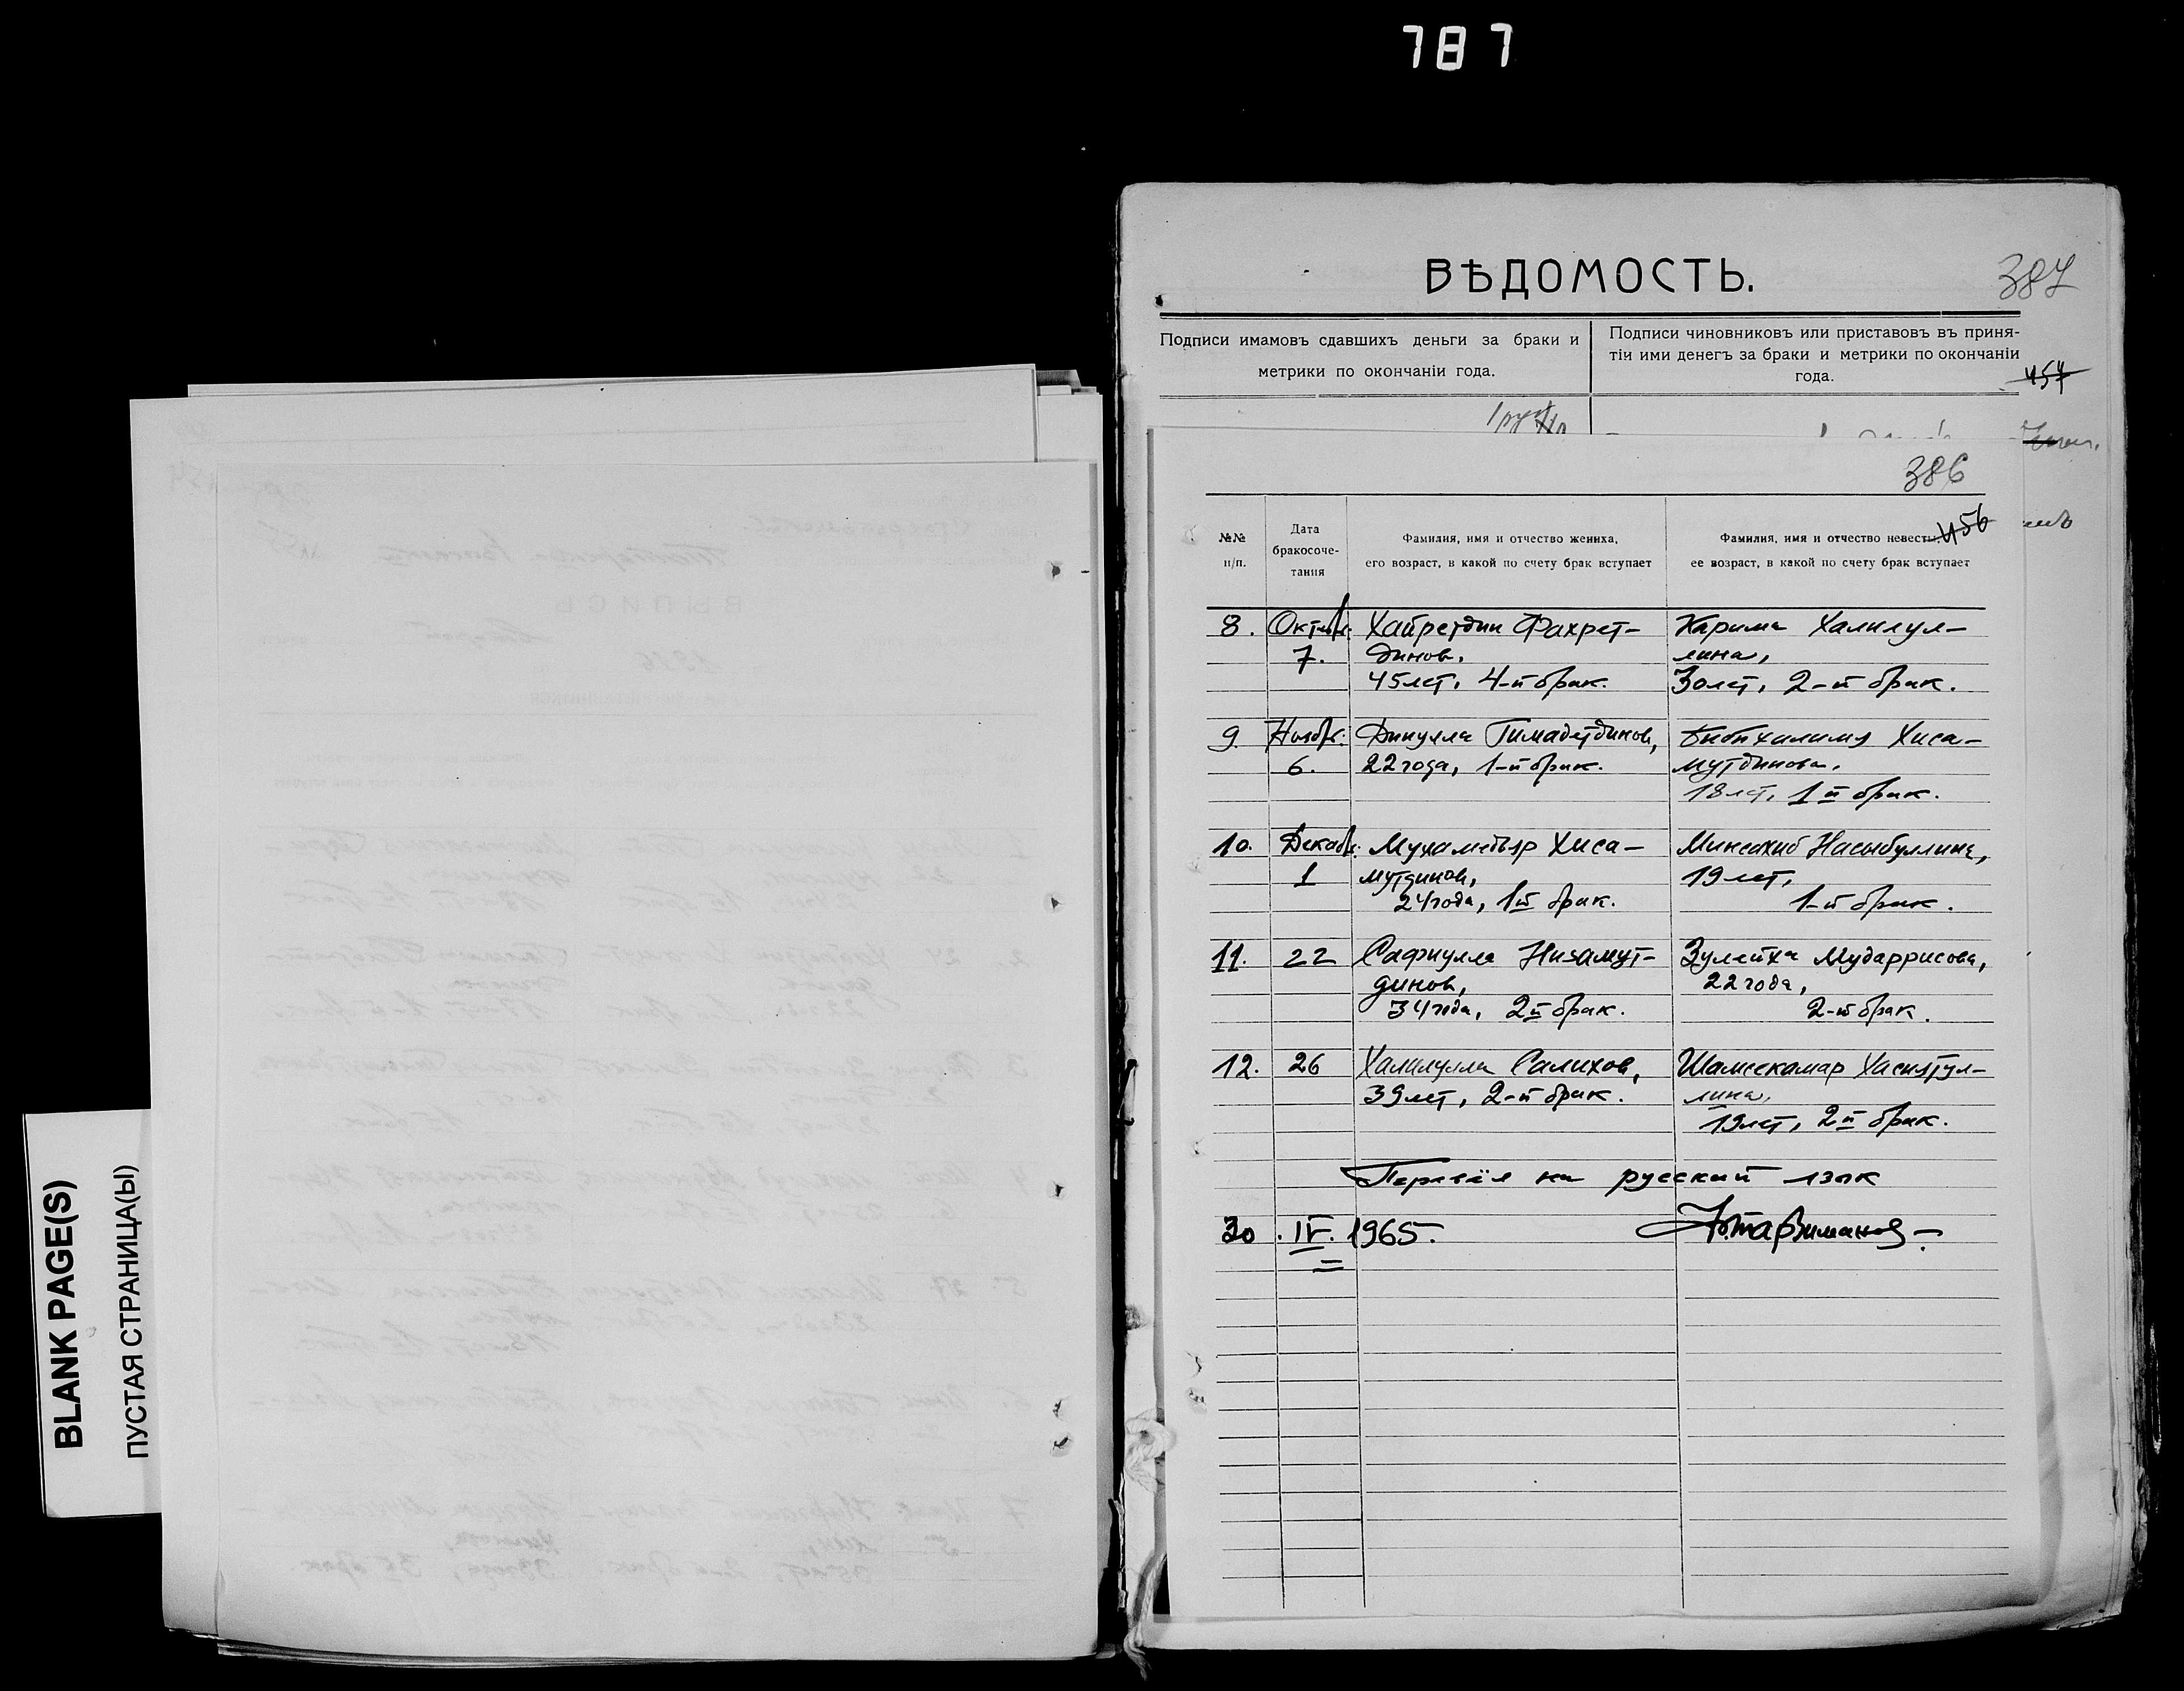 787
ВѢДОМОСТЬ.
387
Подписи имамовъ сдавшихъ деньги за браки и
метрики по окончаніи года.
Подписи чиновниковъ или приставовъ въ приня-
тіи ими денегъ за браки и метрики по окончаніи
года.
457
386
№№
п/п.
Дата
бракосоче-
тания
Фамилия, имя и отчество жениха,
его возраст, в какой по счету брак вступает
Фамилия, имя и отчество невесты,
ее возраст, в какой по счету брак вступает
456
8. Октябр. Хайретдин Фахрет- Карима Халилул-
7. динов, лина,
45 лет, 4-й брак. 30 лет, 2-й брак.
9. Ноябр. Динулла Гимадетдинов, Бибихалима Хиса-
6. 22 года, 1-й брак. мутдинова,
18 лет, 1й брак.
10. Декабр. Мухаметьяр Хиса- Минсахиб Насыбуллина,
1 мутдинов, 19 лет,
24 года, 1й брак. 1-й брак.
11. 22 Сафиулла Низамут- Зулейха Мударрисова,
динов, 22 года,
34 года, 2й брак. 2-й брак.
12. 26 Халилулла Салихов, Шамсекамар Хасиятул-
39 лет, 2-й брак. лина,
19 лет, 2й брак.
Перевёл на русский язык
30. IV. 1965.
BLANK PAGE(S)
ПУСТАЯ СТРАНИЦА(Ы)